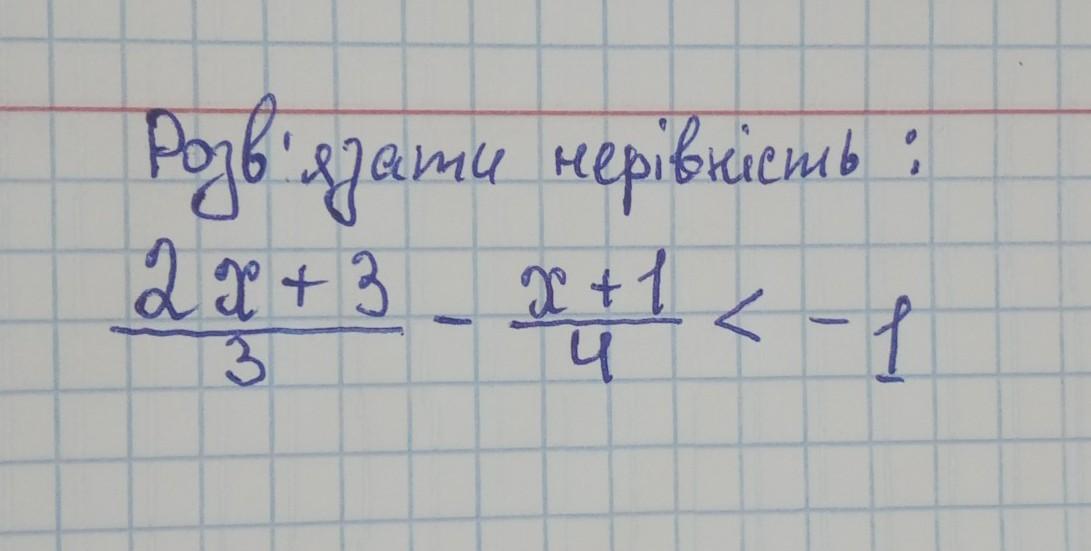 Розв'язати нерівність:
(2x + 3)/3 - (x + 1)/4 < -1